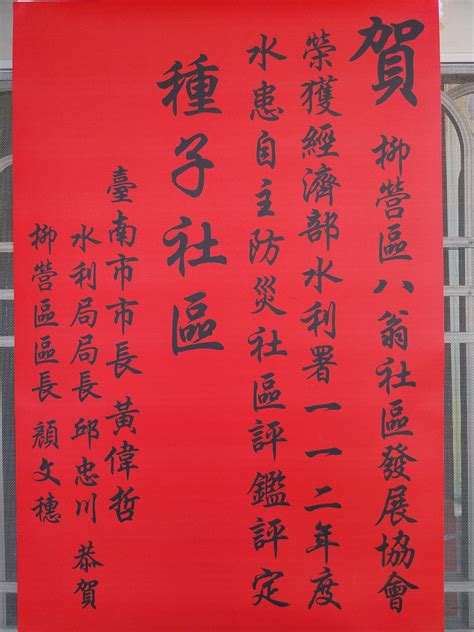 賀 柳營區八翁社區發展協會
榮獲經濟部水利署一一二年度
水患自主防災社區評鑑評定
種子社區
臺南市市長 黃偉哲
水利局局長 邱忠川 恭賀
柳營區區長 顏文穗